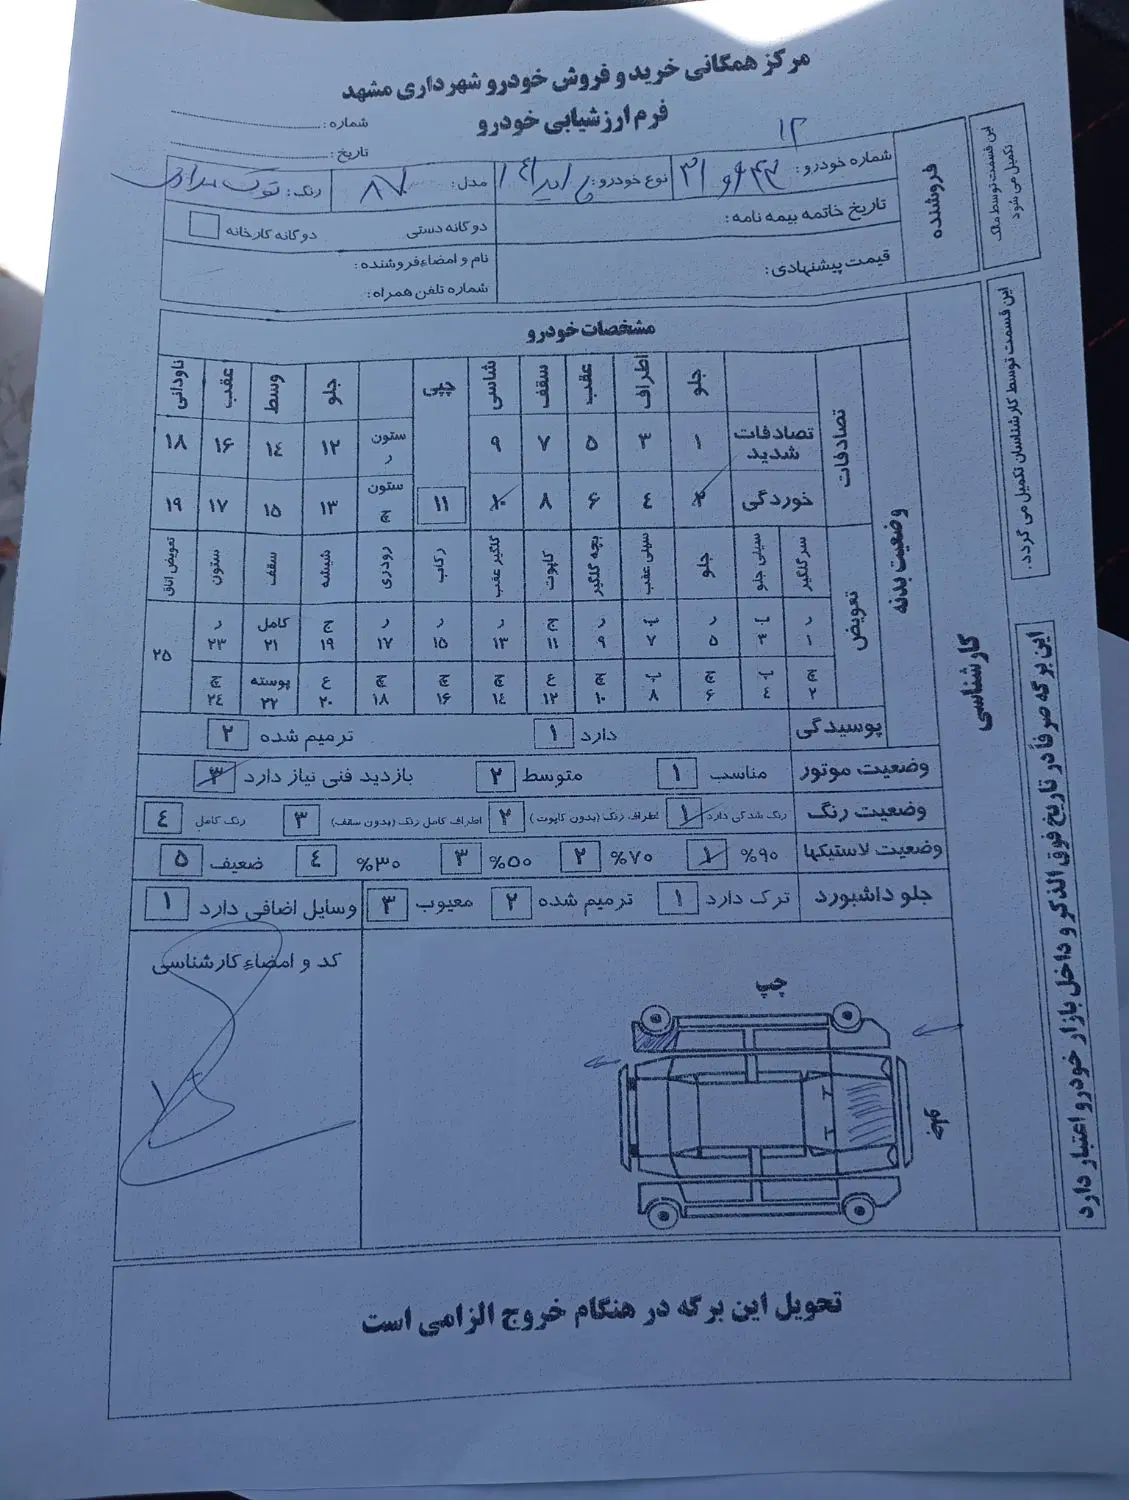 مرکز همگانی خرید و فروش خودرو شهرداری مشهد
فرم ارزشیابی خودرو
شماره :
تاریخ :
این قسمت توسط مالک تکمیل می شود
فروشنده
۱۲
شماره خودرو :
نوع خودرو :
مدل : ۸۷
رنگ : نوک مدادی
تاریخ خاتمه بیمه نامه :
دوگانه دستی
دوگانه کارخانه
قیمت پیشنهادی :
نام و امضاء فروشنده :
شماره تلفن همراه :
این قسمت توسط کارشناسان تکمیل می گردد .
کارشناسی
مشخصات خودرو
وضعیت بدنه
تصادفات
جلو اطراف عقب سقف شاسی جلو وسط عقب ناودانی
تصادفات شدید ۱ ۳ ۵ ۷ ۹ ستون ر ۱۲ ۱۴ ۱۶ ۱۸
خوردگی ۲ ٤ ۶ ۸ ۱۰ ۱۱ ستون چ ۱۳ ۱۵ ۱۷ ۱۹
تعویض
سر گلگیر سینی جلو جلو سینی عقب بچه گلگیر کاپوت گلگیر عقب رکاب رودری شیشه سقف ستون تعویض اتاق
ر ۱ ۳ ر ۵ ۷ ر ۹ ج ۱۱ ر ۱۳ ر ۱۵ ر ۱۷ ج ۱۹ کامل ۲۱ ر ۲۳ ۲۵
چ ۲ ٤ چ ۶ ۸ چ ۱۰ ع ۱۲ چ ۱٤ چ ۱۶ چ ۱۸ ع ۲۰ پوسته ۲۲ چ ۲٤
پوسیدگی دارد ۱ ترمیم شده ۲
وضعیت موتور مناسب ۱ متوسط ۲ بازدید فنی نیاز دارد ۳
وضعیت رنگ رنگ شدگی دارد ۱ اطراف رنگ (بدون کاپوت) ۲ اطراف کامل رنگ (بدون سقف) ۳ رنگ کامل ٤
وضعیت لاستیکها ۹۰% ۱ ۷۰% ۲ ۵۰% ۳ ۳۰% ٤ ضعیف ۵
جلو داشبورد ترک دارد ۱ ترمیم شده ۲ معیوب ۳ وسایل اضافی دارد ۱
کد و امضاء کارشناسی
چپ
جلو
این برگه صرفاً در تاریخ فوق الذکر و داخل بازار خودرو اعتبار دارد
تحویل این برگه در هنگام خروج الزامی است